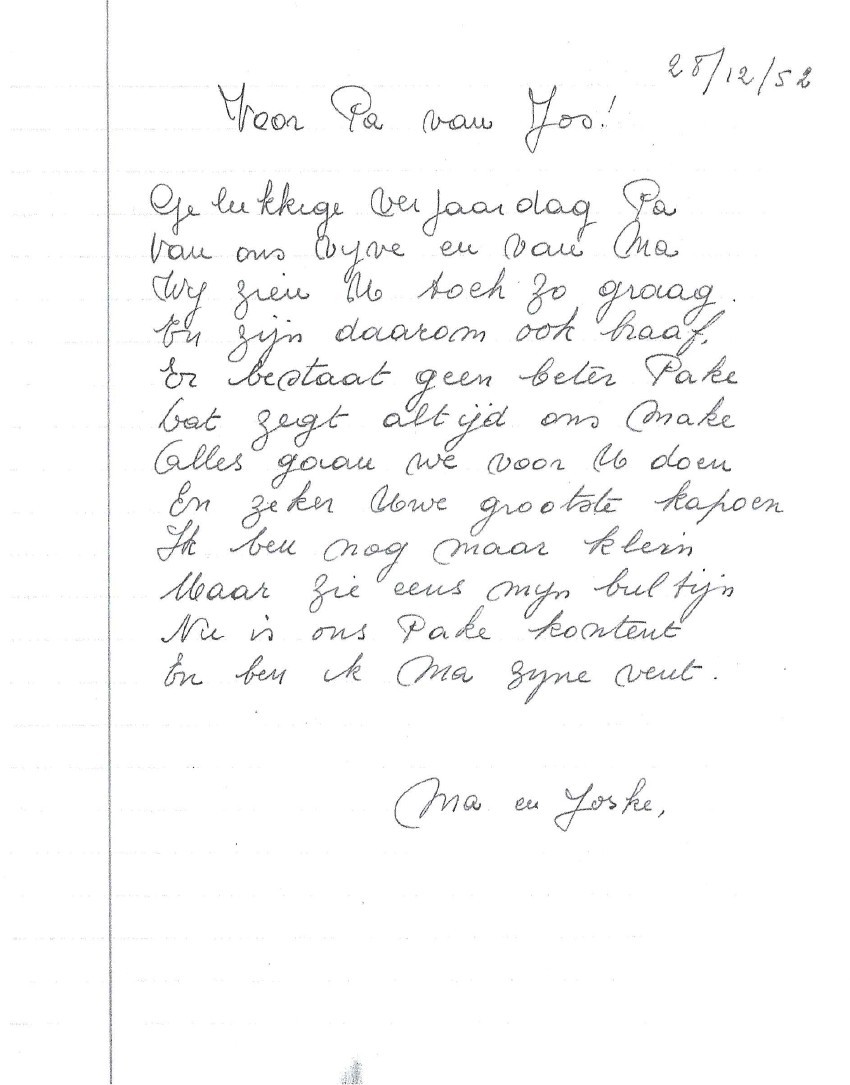 28/12/52
Voor Pa van Jos!
Gelukkige Verjaardag Pa
Van ons vyve en van Ma
Wy zien U toch zo graag.
En zijn daarom ook braaf,
Er bestaat geen beter Pake
Dat zegt altijd ons Make
Alles gaan we voor U doen
En zeker Uwe grootste kapoen
Ik ben nog maar klein
Maar zie eens mijn bultijn
Nu is ons Pake kontent
En ben ik Ma zyne vent.
Ma en Joske,